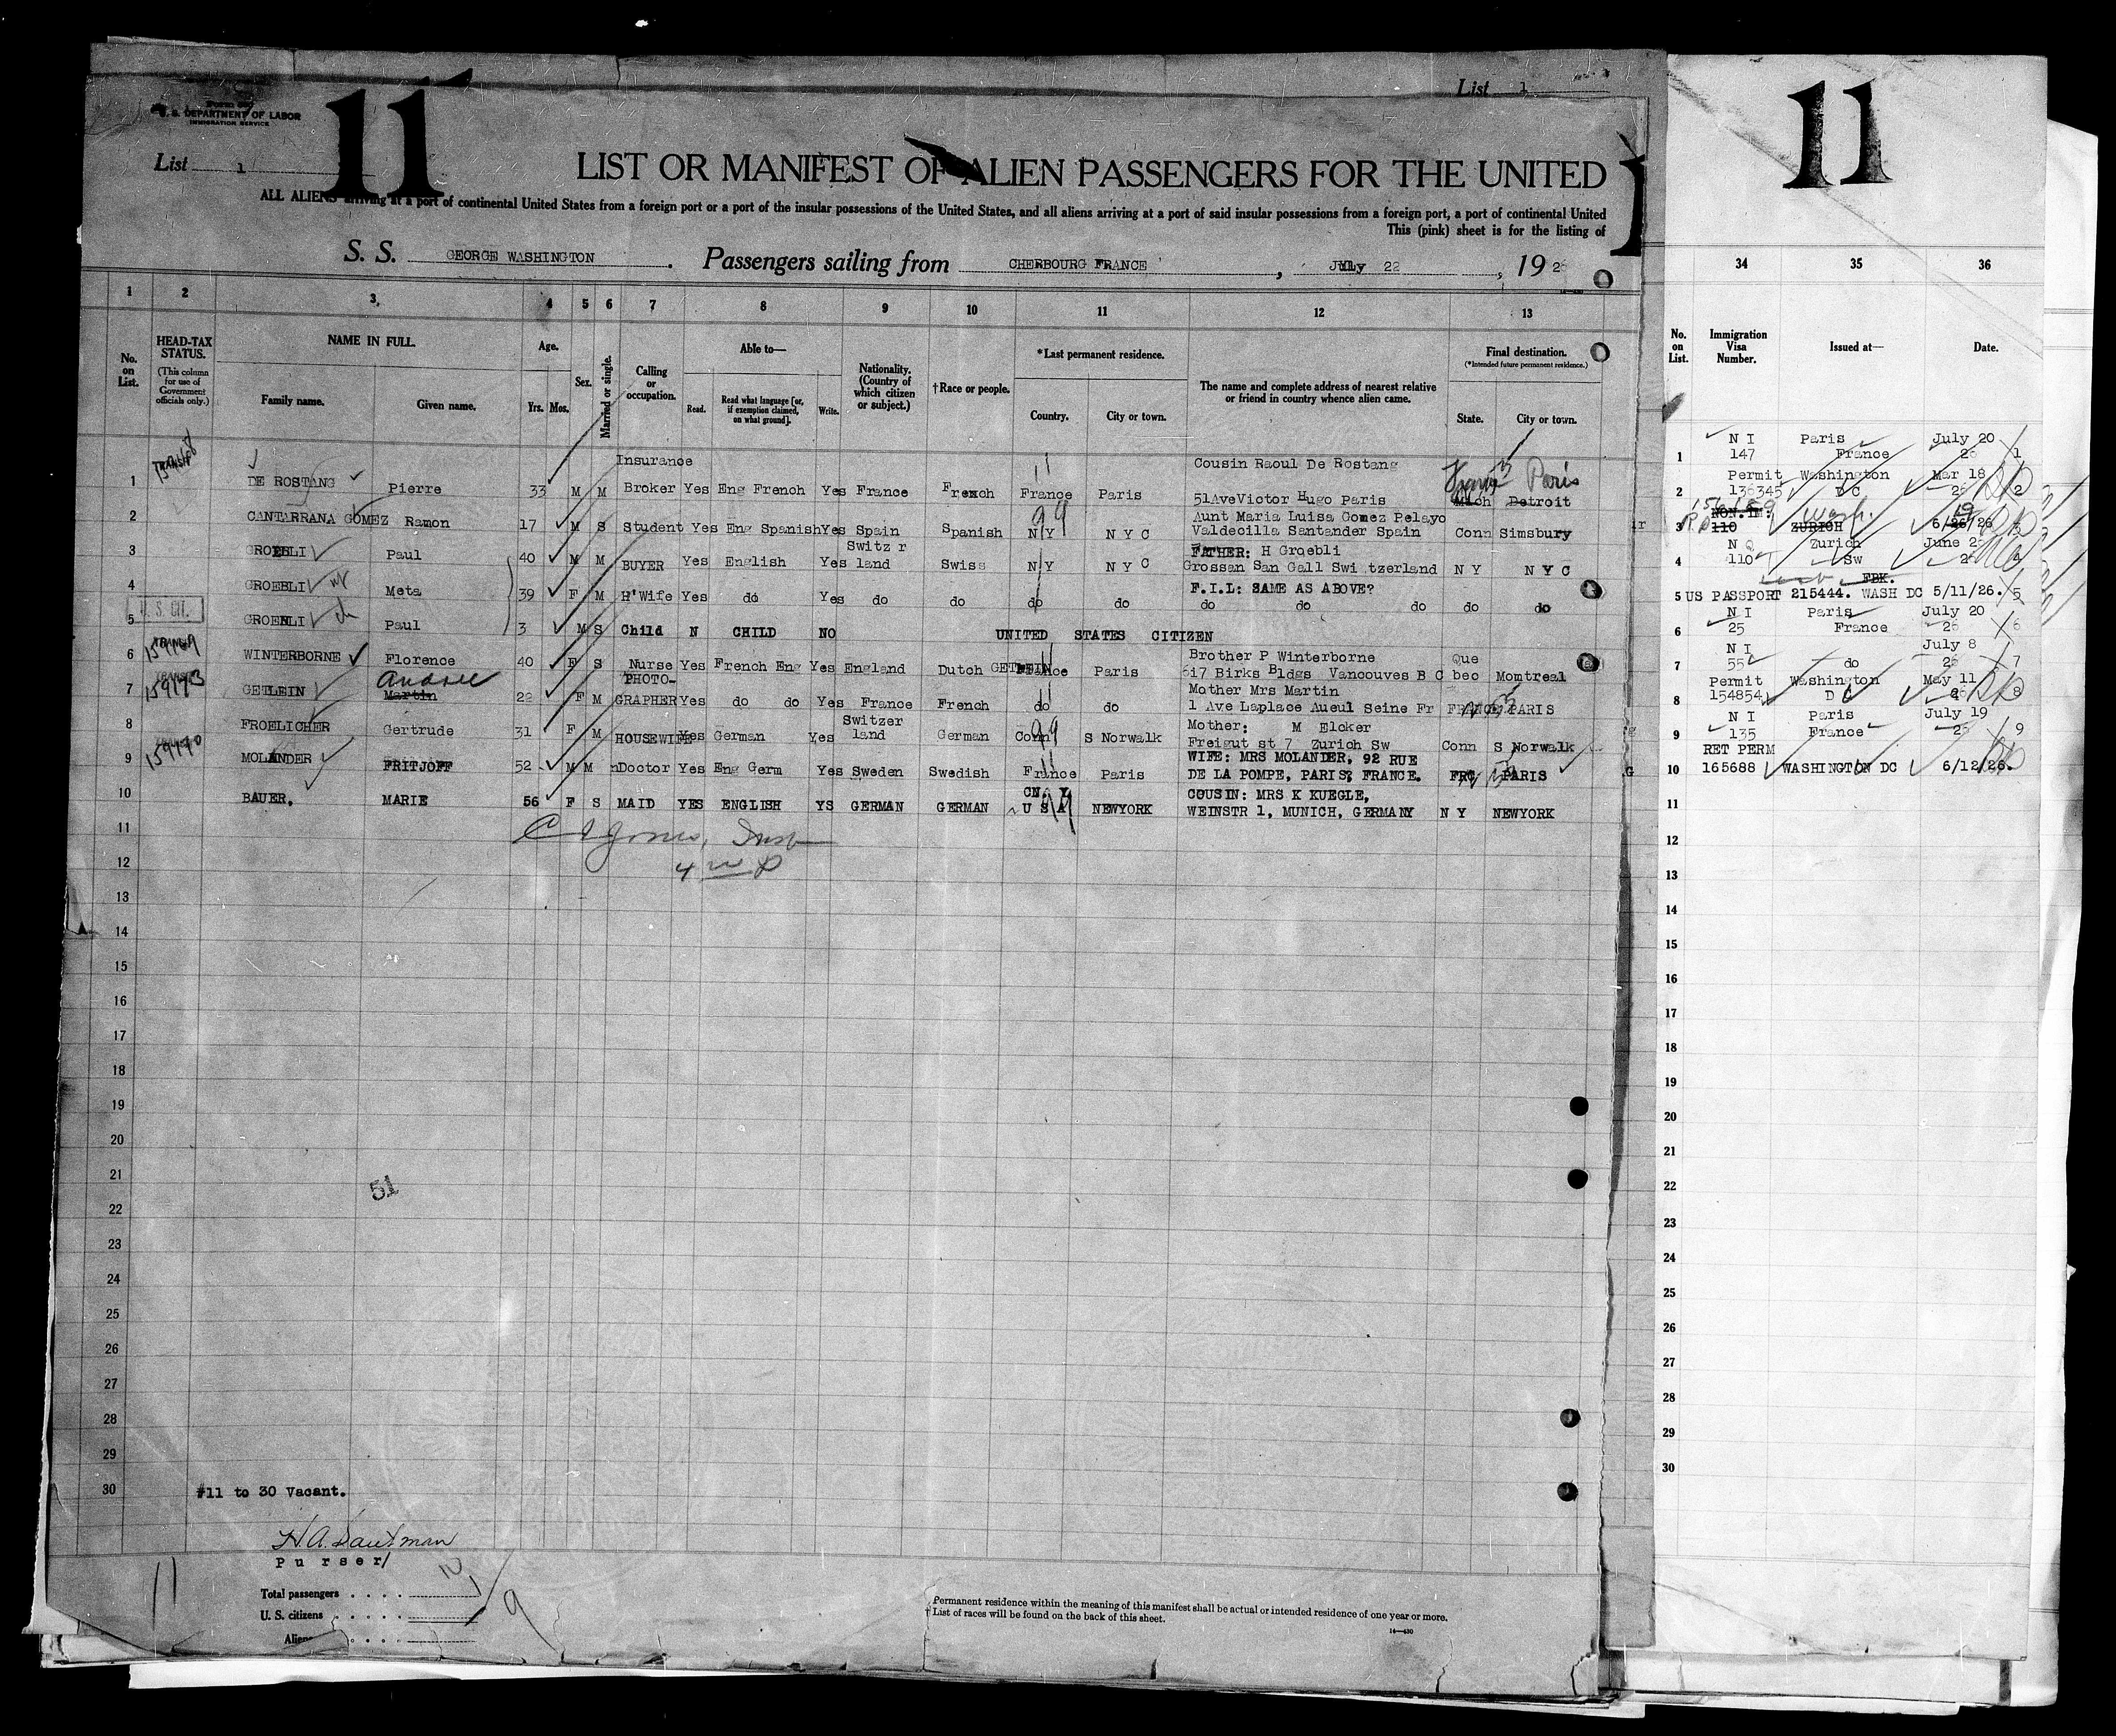 List 1
11
11
Form 500
U. S. DEPARTMENT OF LABOR
IMMIGRATION SERVICE
List 1
LIST OR MANIFEST OF ALIEN PASSENGERS FOR THE UNITED
ALL ALIENS arriving at a port of continental United States from a foreign port or a port of the insular possessions of the United States, and all aliens arriving at a port of said insular possessions from a foreign port, a port of continental United
This (pink) sheet is for the listing of
S. S. GEORGE WASHINGTON . Passengers sailing from CHERBOURG FRANCE , July 22 , 19 26
1 2 3 4 5 6 7 8 9 10 11 12 13 34 35 36
No. on List.
HEAD-TAX STATUS.
(This column for use of Government officials only.)
NAME IN FULL.
Family name. Given name.
Age.
Yrs. Mos.
Sex.
Married or single.
Calling or occupation.
Able to—
Read. Read what language [or, if exemption claimed, on what ground]. Write.
Nationality. (Country of which citizen or subject.)
†Race or people.
*Last permanent residence.
Country. City or town.
The name and complete address of nearest relative or friend in country whence alien came.
Final destination.
(*Intended future permanent residence.)
State. City or town.
No. on List.
Immigration Visa Number.
Issued at—
Date.
Insurance Cousin Raoul De Rostang Paris
1 DE ROSTANG Pierre 33 M M Broker Yes Eng French Yes France French France Paris 51AveVictor Hugo Paris Mich Detroit
Aunt Maria Luisa Gomez Pelayo
2 CANTARRANA GOMEZ Ramon 17 M S Student Yes Eng Spanish Yes Spain Spanish N Y N Y C Valdecilla Santander Spain Conn Simsbury
Switz r FATHER: H Groebli
3 GROEBLI Paul 40 M M BUYER Yes English Yes land Swiss N Y N Y C Grossan San Gall Switzerland N Y N Y C
F.I.L: SAME AS ABOVE?
4 GROEBLI Meta 39 F M H'Wife Yes do Yes do do do do do do do do do
U. S. CIT.
5 GROEBLI Paul 3 M S Child N CHILD NO UNITED STATES CITIZEN
Brother P Winterborne Que
6 WINTERBORNE Florence 40 F S Nurse Yes French Eng Yes England Dutch France Paris 617 Birks Bldgs Vancouves B C bec Momtreal
Andree PHOTO- Mother Mrs Martin
7 GETLEIN Martin 22 F M GRAPHER Yes do do Yes France French do do 1 Ave Laplace Aueul Seine Fr FRANCE PARIS
Switzer Mother: M Elcker
8 FROELICHER Gertrude 31 F M HOUSEWIFE Yes German Yes land German Conn S Norwalk Freigut st 7 Zurich Sw Conn S Norwalk
WIFE: MRS MOLANDER, 92 RUE
9 MOLANDER FRITJOFF 52 M M Doctor Yes Eng Germ Yes Sweden Swedish France Paris DE LA POMPE, PARIS, FRANCE. FRC PARIS
COUSIN: MRS K KUEGLE,
10 BAUER, MARIE 56 F S MAID YES ENGLISH YS GERMAN GERMAN U S A NEWYORK WEINSTR 1, MUNICH, GERMANY N Y NEWYORK
11
12
13
14
15
16
17
18
19
20
21
51
22
23
24
25
26
27
28
29
30 #11 to 30 Vacant.
Purser
Total passengers 10
U. S. citizens 1
Aliens 9
11
Permanent residence within the meaning of this manifest shall be actual or intended residence of one year or more.
† List of races will be found on the back of this sheet.
14—430
N I Paris July 20
1 147 France 26 1
Permit Washington Mar 18
2 136345 D C 26 2
NON.IM: Wash.
3 110 ZURICH 6/26/26 3
Zurich June
4 110 Sw 26 4
5 US PASSPORT 215444. WASH DC 5/11/26. 5
N I Paris July 20
6 25 France 26 6
N I July 8
7 55 do 26 7
Permit Washington May 11
8 154854 D C 26 8
N I Paris July 19
9 135 France 26 9
RET PERM
10 165688 WASHINGTON DC 6/12/26.
11
12
13
14
15
16
17
18
19
20
21
22
23
24
25
26
27
28
29
30